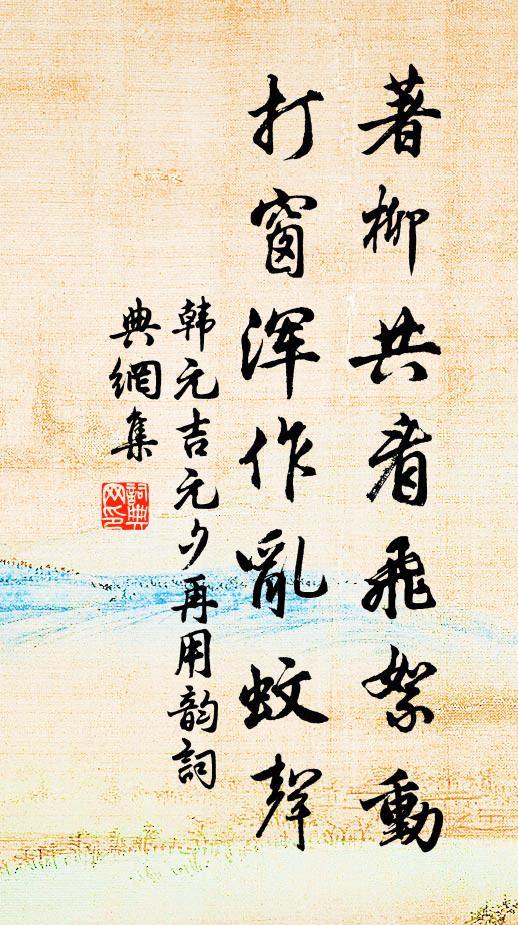 著柳共看飛絮動
打窗渾作亂蚊聲
韩元吉元夕再用韵詞
典網集
詞典网印